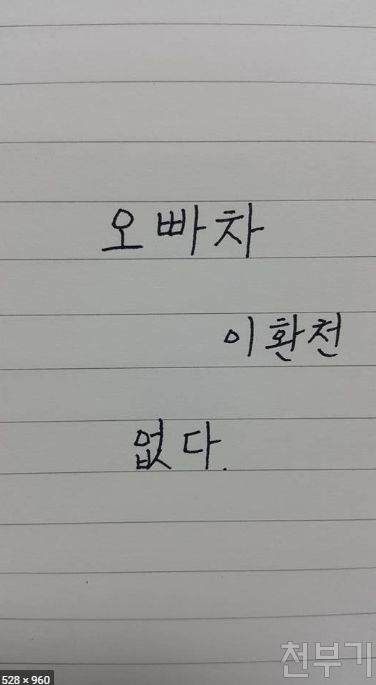 오빠차
이환천
없다.
천부기
528 × 960